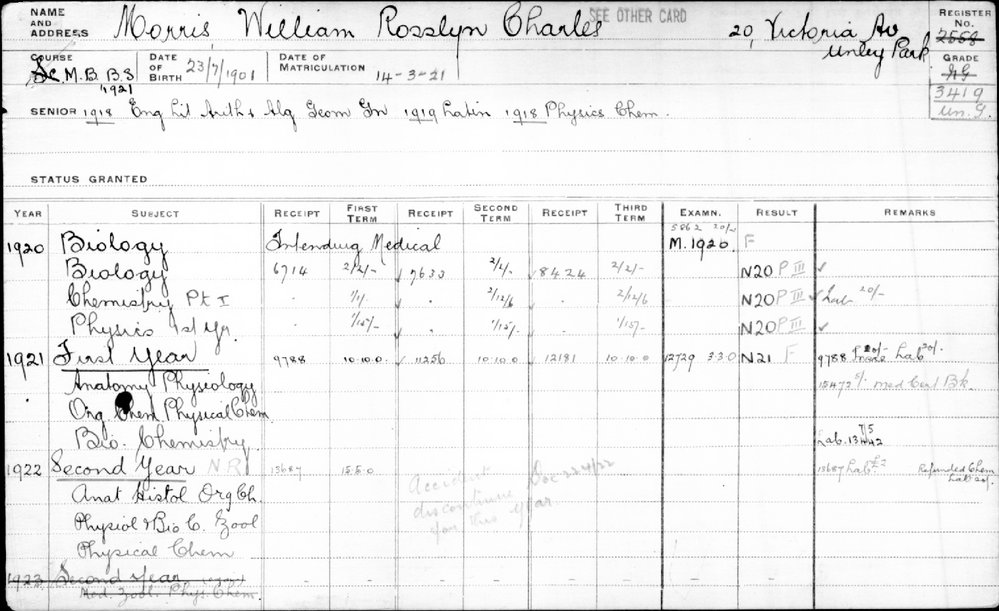 NAME AND ADDRESS Morris, William Rosslyn Charles SEE OTHER CARD 20, Victoria Av Unley Park REGISTER No. 2558
COURSE Sc. M.B. B.S 1921 DATE OF BIRTH 23/7/1901 DATE OF MATRICULATION 14-3-21 GRADE
3419
Un. G.
SENIOR 1918 Eng Lit Arith & Alg Geom Fr 1919 Latin 1918 Physics Chem.
STATUS GRANTED
YEAR SUBJECT RECEIPT FIRST TERM RECEIPT SECOND TERM RECEIPT THIRD TERM EXAMN. RESULT REMARKS
5862 20/-
1920 Biology Intending Medical M. 1920 F
Biology 6714 2/2/- ✓ 7633 2/2/- ✓ 8424 2/2/- N20 P III ✓
Chemistry Pt I . 1/1/ . 2/12/6 . 2/12/6 N20 P III ✓ Lab 20/-
Physics 1st Yr . 1/15/- . 1/15/- . 1/15/- N20 P III ✓
1921 First Year 9788 10.10.0 ✓ 11256 10.10.0 ✓ 12181 10.10.0 12729 3.3.0 N21 F 9788 Lab 20/-
Anatomy Physiology 15472 5/- Med Cert Bk.
Org Chem Physical Chem
Bio. Chemistry Lab. 13442
1922 Second Year NR 15687 15.5.0 Accident Doc 22/4/22 15687 Lab £2 Refunded Chem Lab 20/-
Anat Histol Org Ch. discontinue
Physiol & Bio C. Zool for this year
Physical Chem
1923 Second Year - - - - - - - - -
Med. Zool. Phys. Chem.